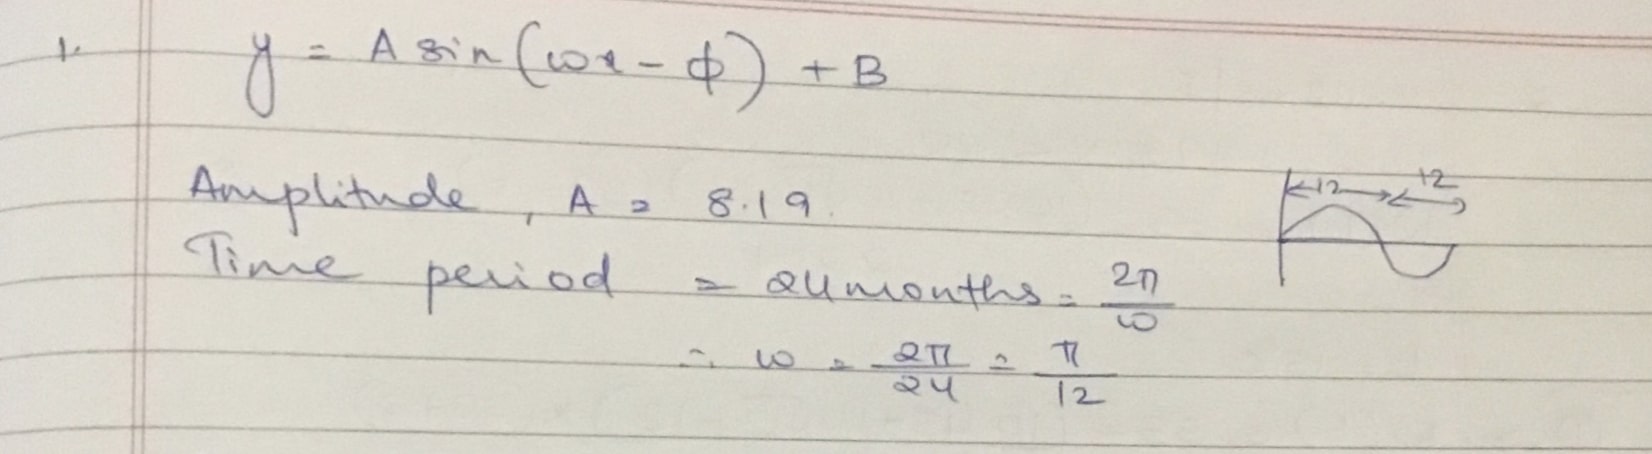 1. y = A sin (ωx - φ) + B
Amplitude, A = 8.19.
12 12
Time period = 24 months = 2π/ω
∴ ω = 2π/24 = π/12